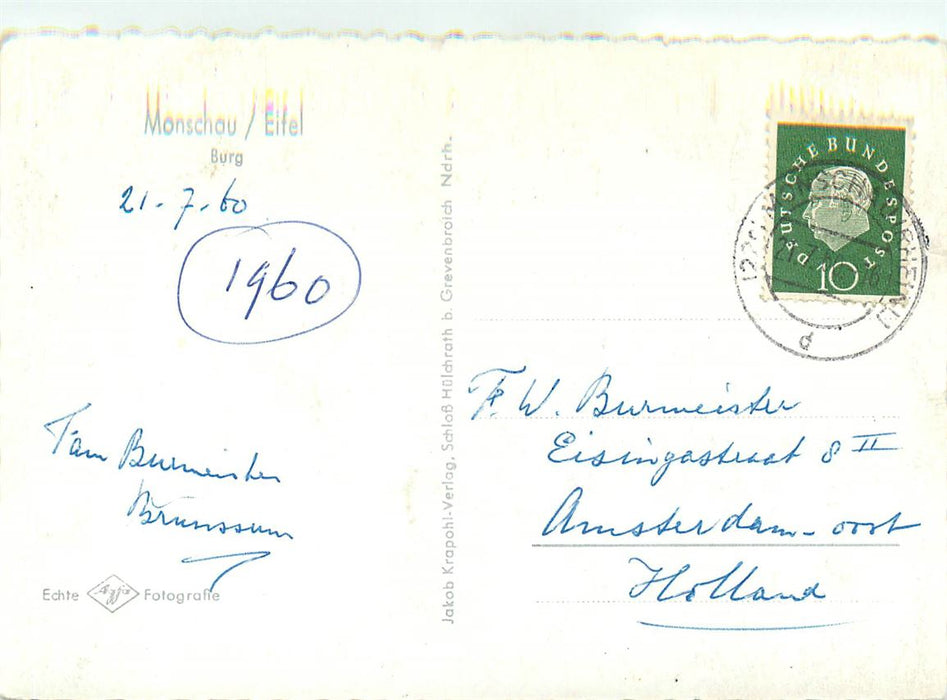 Monschau / Eifel
Burg
21-7-60
1960
Fam Burmeister
Brunssum
Echte Agfa Fotografie
Jakob Krapohl-Verlag, Schloß Hülchrath b. Grevenbroich Ndrh.
DEUTSCHE BUNDESPOST
10
MONSCHAU (RHEINL)
21.7.60
F. W. Burmeister
Eisingastraat 8 II
Amsterdam-oost
Holland